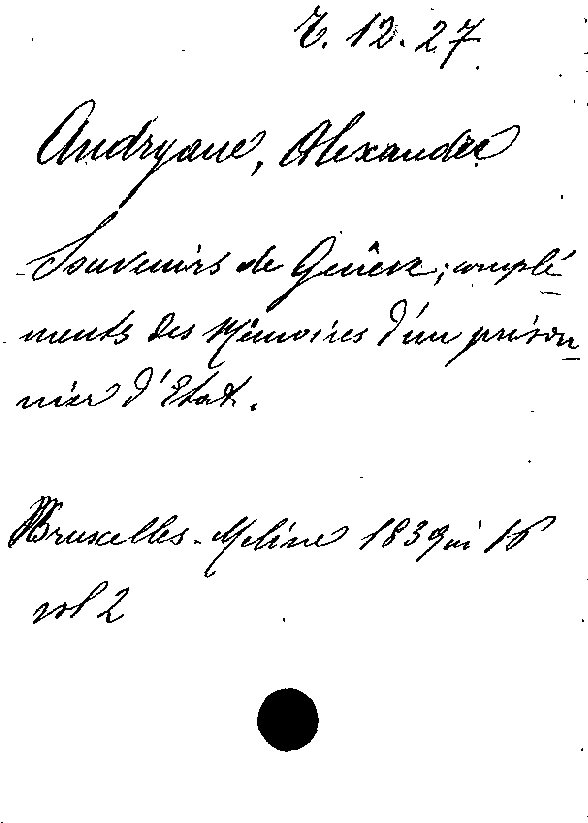 T. 12. 27
Andryane, Alexandre
Souvenirs de Genève; complé-
ments des Mémoires d'un prison-
nier d'Etat.
Bruxelles - Meline 1839 in 16
vol 2